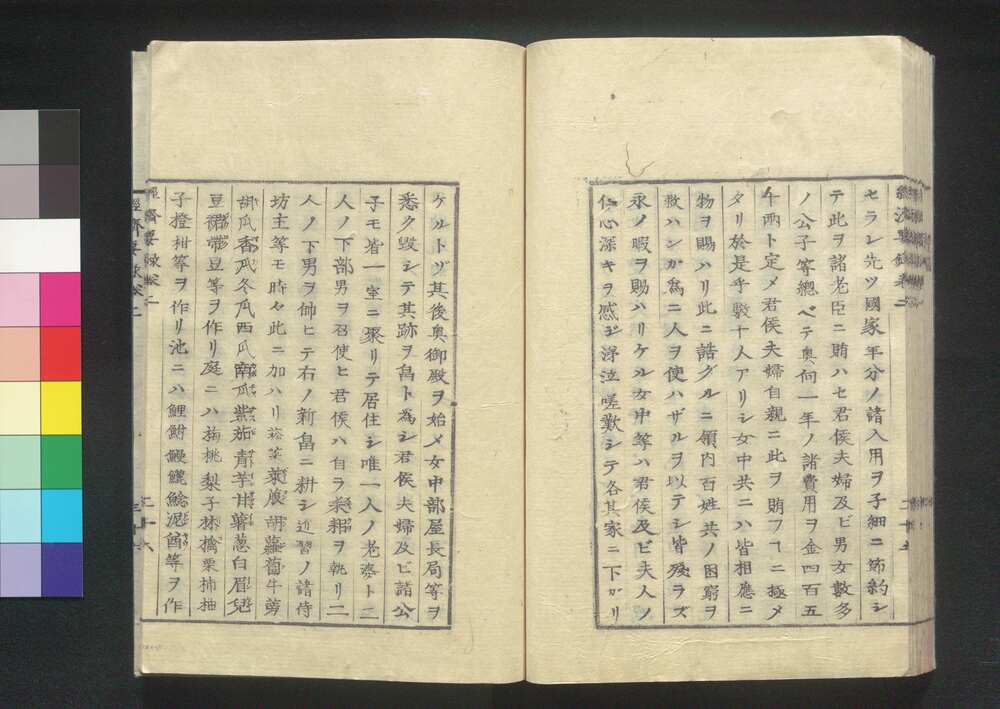 セラレ先ツ國家年分ノ諸入用ヲ子細ニ節約シ
テ此ヲ諸老臣ニ賄ハセ君侯夫婦及ビ男女數多
ノ公子等總ベテ奥向一年ノ諸費用ヲ金四百五
十両ト定メ君侯夫婦自親ニ此ヲ賄フヿニ極メ
タリ於是乎數十人アリシ女中共ニハ皆相應ニ
物ヲ賜ハリ此ニ誥グルニ領内百姓共ノ困窮ヲ
救ハンガ為ニ人ヲ使ハザルヲ以テシ皆殘ラズ
永ノ暇ヲ賜ハリケル女中等ハ君侯及ビ夫人ノ
信心深キヲ感ジ涕泣嗟歎シテ各其家ニ下ガリ
ケルトゾ其後奥御殿ヲ始メ女中部屋長局等ヲ
悉ク毀シテ其跡ヲ畠ト為シ君侯夫婦及ビ諸公
子モ皆一室ニ聚リテ居住シ唯一人ノ老婆ト二
人ノ下部男ヲ召使ヒ君侯ハ自ラ耒耜ヲ執リ二
人ノ下男ヲ帥ヒテ右ノ新畠ニ耕シ近習ノ諸侍
坊主等モ時々此ニ加ハリ菘萊菔胡蘿蔔牛蒡
胡瓜香瓜冬瓜西瓜南瓜紫茄青芋甘薯葱白眉兒
豆裙帶豆等ヲ作リ庭ニハ梅桃梨子林檎栗柿柚
子橙柑等ヲ作リ池ニハ鯉鮒鰻鱺鯰泥鰌等ヲ作
經濟要録卷二